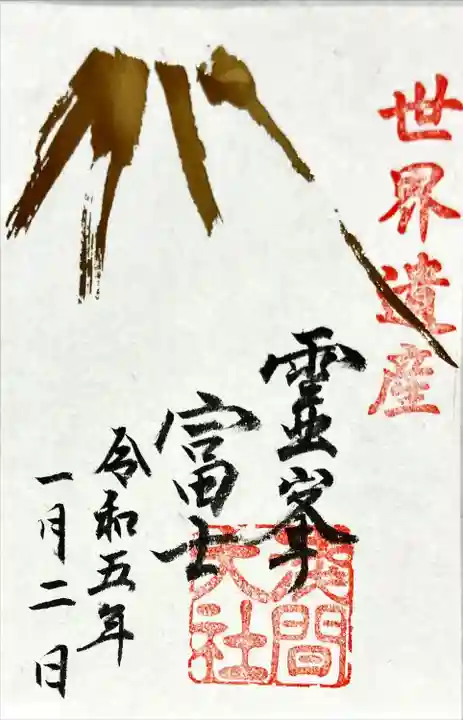 世界遺産
靈峯
富士
浅間
大社
令和五年
一月二日